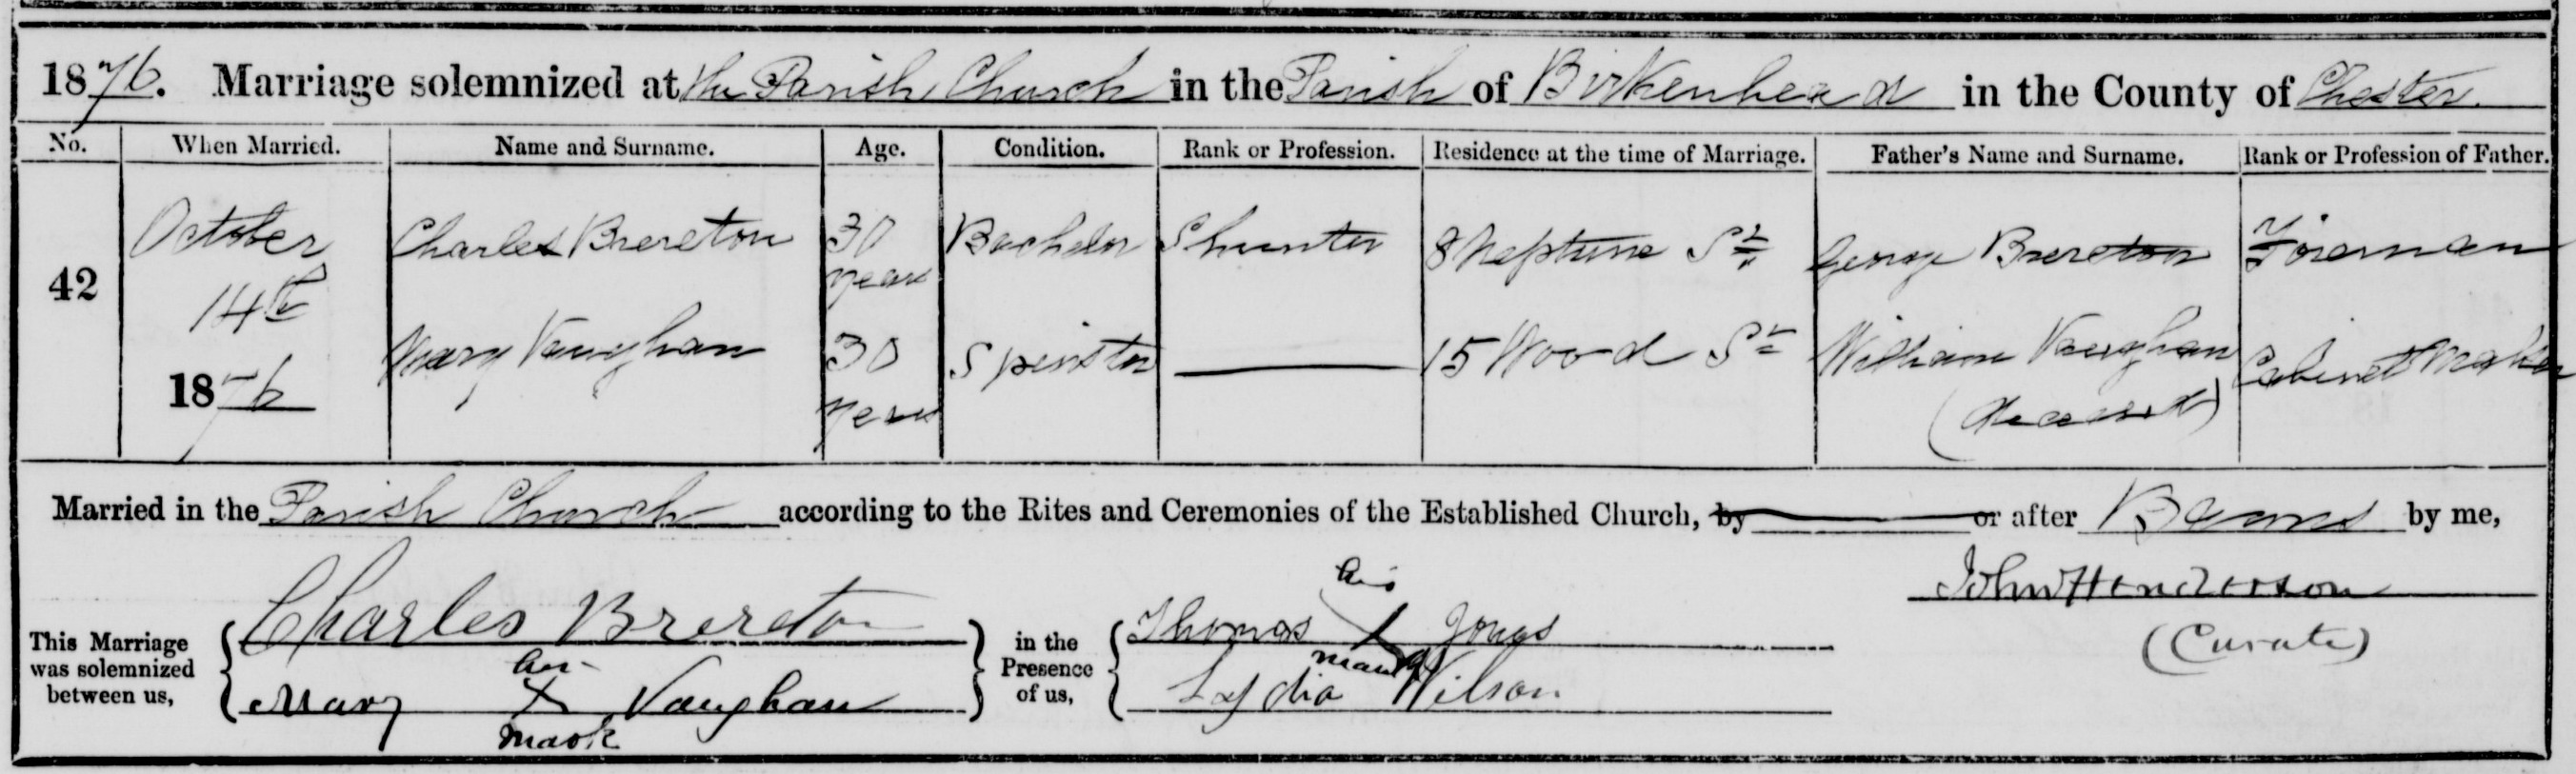 1876. Marriage solemnized at the Parish Church in the Parish of Birkenhead in the County of Chester.
No. When Married. Name and Surname. Age. Condition. Rank or Profession. Residence at the time of Marriage. Father's Name and Surname. Rank or Profession of Father.
42 October 14th 1876 Charles Brereton 30 years Bachelor Shunter 8 Neptune St George Brereton Foreman
Mary Vaughan 30 years Spinster 15 Wood St William Vaughan (deceased) Cabinet Maker
Married in the Parish Church according to the Rites and Ceremonies of the Established Church, by or after Banns by me,
John Henderson
(Curate)
This Marriage was solemnized between us, Charles Brereton
Mary her X mark Vaughan
in the Presence of us, Thomas his X mark Jones
Lydia Wilson